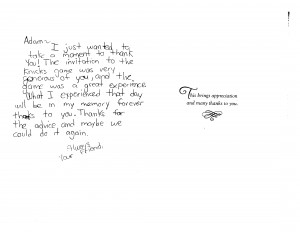 Adam -
I just wanted to
take a moment to thank
you! The invitation to the
Knicks game was very
generous of you, and the
game was a great experience
What I experienced that day
will be in my memory forever
thanks to you. Thanks for
the advice and maybe we
could do it again.
Always
Your friend.
This brings appreciation
and many thanks to you.